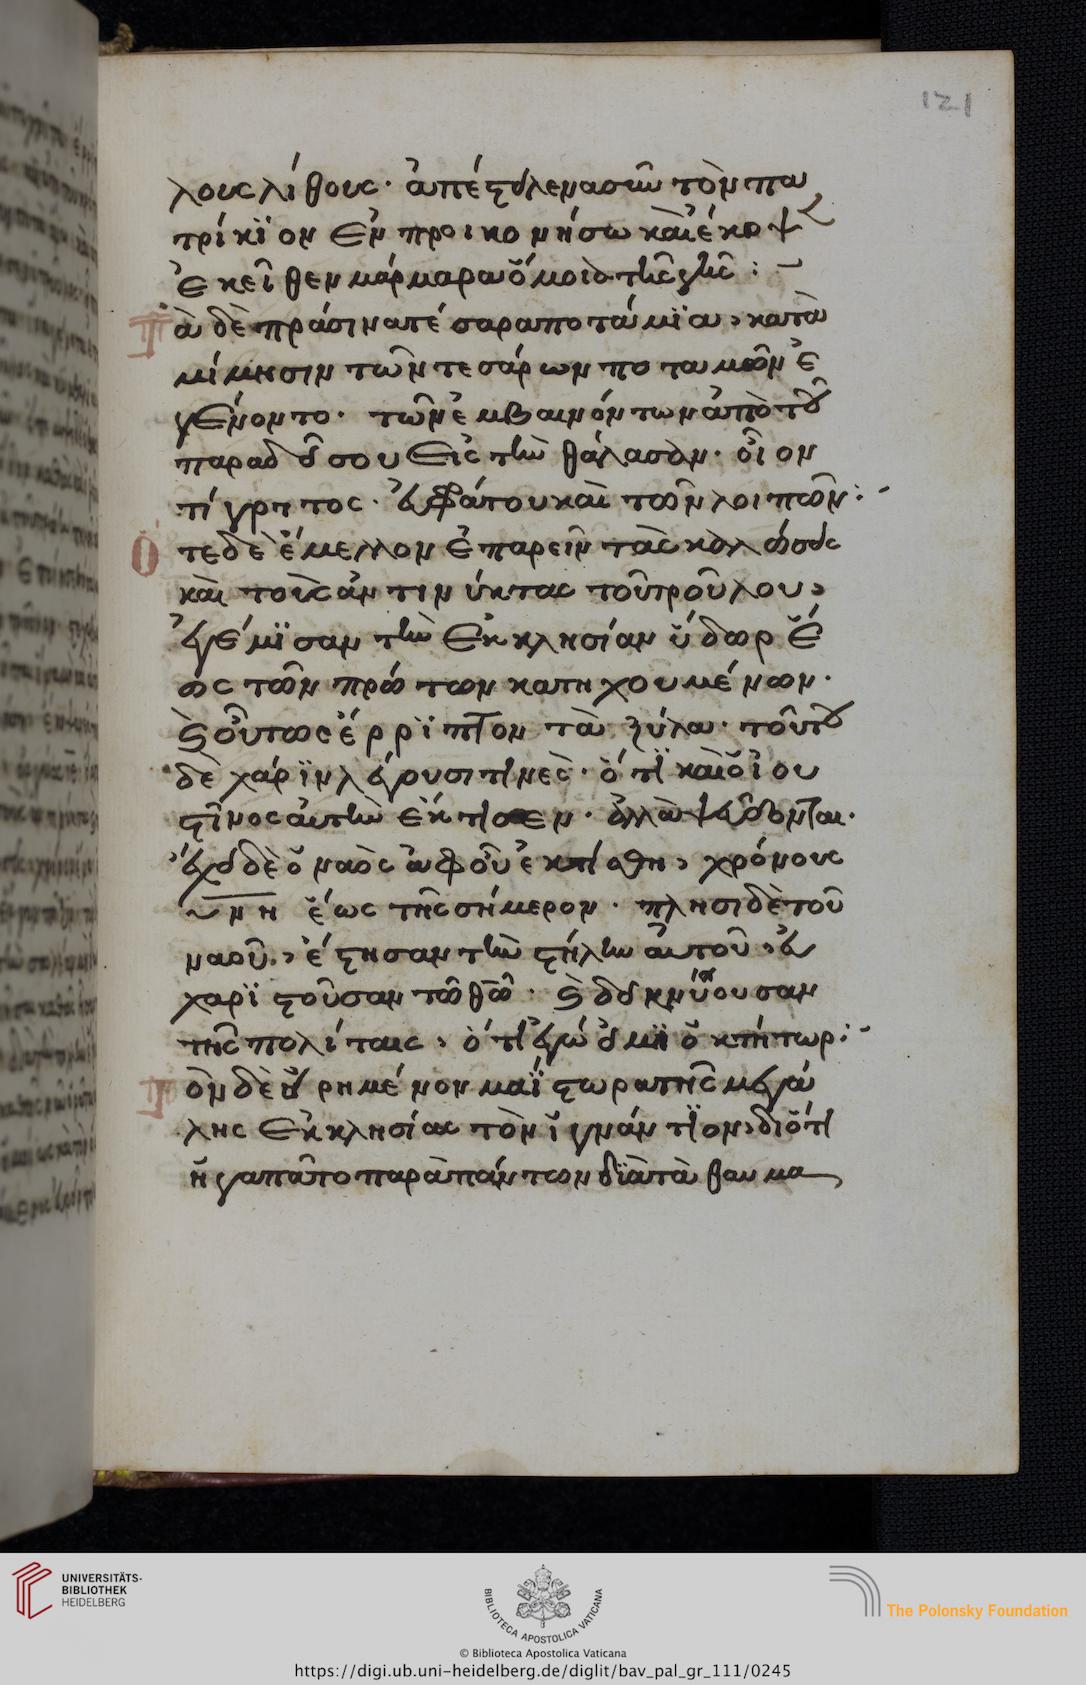 121
λους λίθους · ἀπέστειλεν ασὼ τὸν πα
τρίκϊον ἐν προικονήσω καὶ ἔκοψ
ἐκεῖθεν μάρμαρα ὅμοια τῆς γῆς :
Τὰ δὲ πράσινα τέσαρα ποτάμϊα, κατὰ
μίμησιν τῶν τεσάρων ποταμῶν ἐ
γένοντο · τῶν ἐμβαινόντων ἀπὸ τοῦ
παραδείσου εἰς τὴν θάλασαν · οἷον
τίγρητος · εὐφράτου καὶ τῶν λοιπῶν :
Ὅτε δὲ ἔμελλον ἐπαρεῖν τὰς
καὶ τοὺς ἀντινύκτας τοῦ τρούλου,
ἐγέμϊσαν τὴν ἐκκλησίαν ὕδωρ ἕ
ως τῶν πρώτων κατηχουμένων ·
καὶ οὕτως ἔρρϊπτον τὰ ξύλα · τούτου
δὲ χάρϊν λέγουσι τινὲς · ὅτϊ καὶ ὁ ἰου
στῖνος αὐτὴν ἔκτισεν · ἀλλὰ ψεύδονται ·
ἔχει δὲ ὁ ναὸς ἀφοῦ ἐκτίσθη, χρόνους
ωνη ἕως τῆς σήμερον · πλησι δὲ τοῦ
ναοῦ, ἔστησαν τὴν στήλην αὐτοῦ, εὐ
χαρϊστοῦσαν τῶ θῶ · καὶ δεικνύουσαν
τῆς πολίταις, ὅτι ἐγώ εἰμϊ ὁ κτήτωρ :
Τὸν δὲ εἰρημένον μαΐστωρα τῆς μεγά
λης ἐκκλησίας τὸν ἰγνάντϊον, διότι
ἠγαπᾶτο παρὰ πάντων διὰ τὰ θαυμα
UNIVERSITÄTS-
BIBLIOTHEK
HEIDELBERG
BIBLIOTECA APOSTOLICA VATICANA
The Polonsky Foundation
© Biblioteca Apostolica Vaticana
https://digi.ub.uni-heidelberg.de/diglit/bav_pal_gr_111/0245